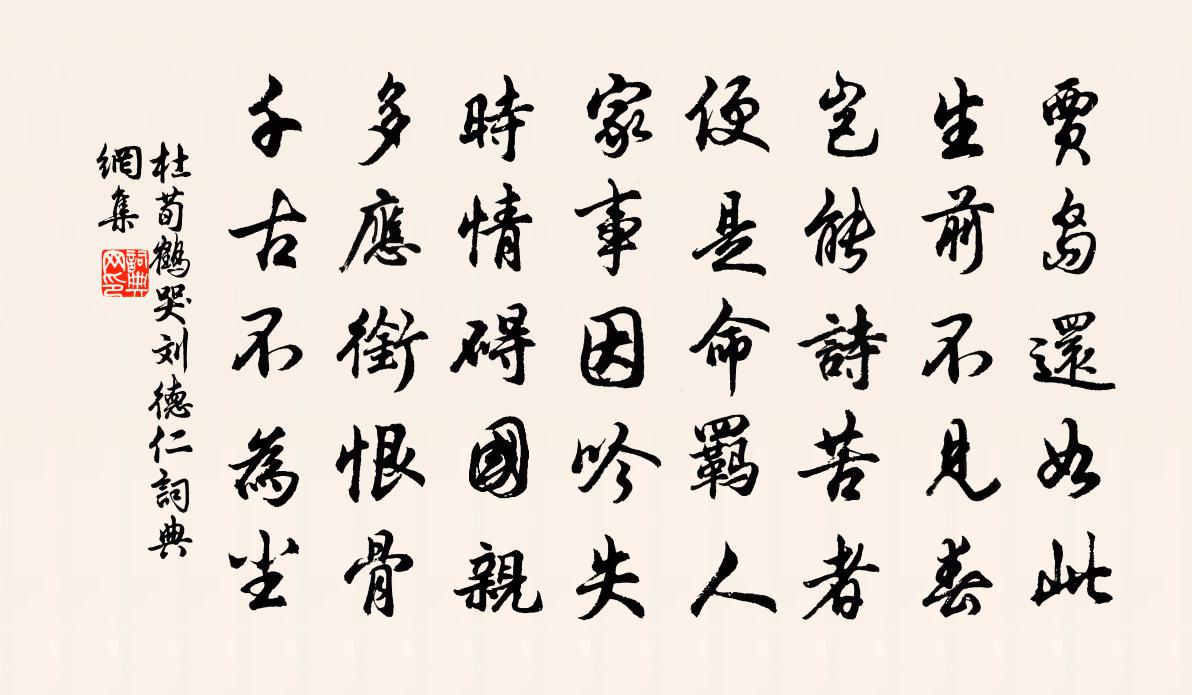 賈島還如此
生前不見春
豈能詩苦者
便是命羈人
家事因吟失
時情碍國親
多應銜恨骨
千古不為塵
杜荀鶴哭刘德仁詞典
網集
詞典
网印